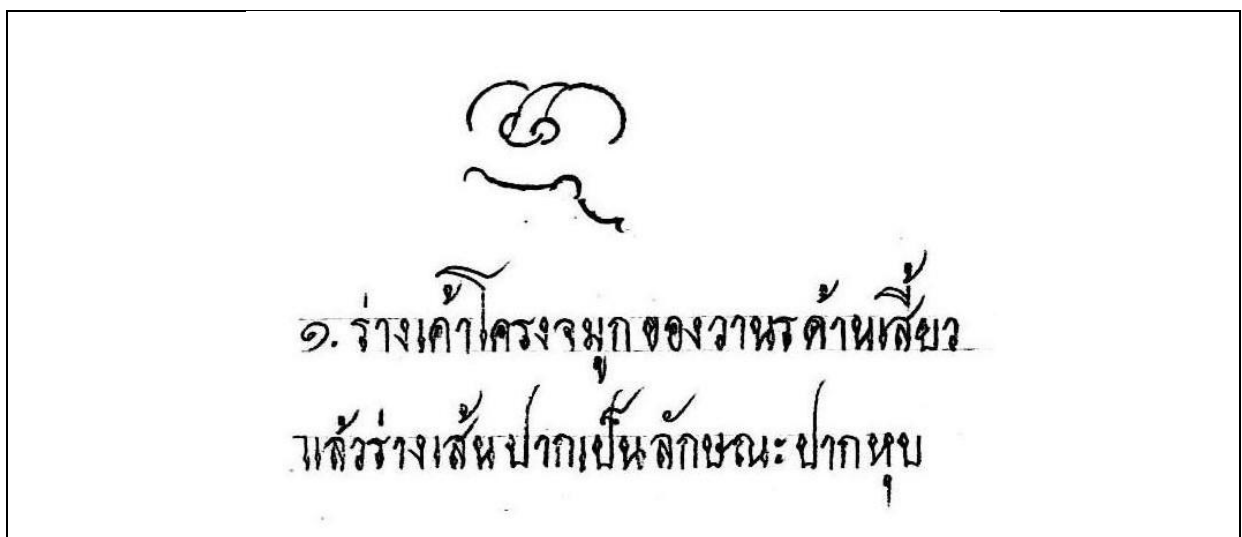 ๑. ร่างเค้าโครงจมูกของวานรด้านเสี้ยว
แล้วร่างเส้นปากเป็นลักษณะปากหุบ